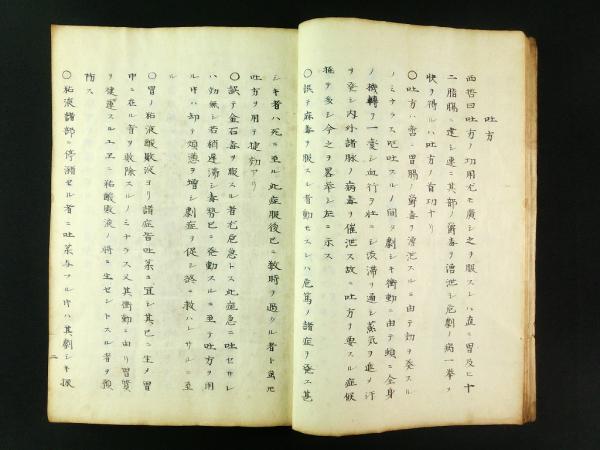 吐方
西哲曰吐方ノ功用尤モ廣シ之ヲ服スレハ直ニ胃及ヒ十
二指腸ニ達シ速ニ其部ノ毒ヲ漕泄シ危劇ノ病一挙メ
快ヲ得ルハ吐方ノ首功ナリ
〇吐方ハ啻ニ胃腸ノ毒ヲ漕泄スルニ由テ功ヲ奏スル
ノミナラス呕吐スルノ間タ劇シキ衝動ニ由テ頓ニ全身
ノ機轉ヲ一変シ血行ヲ壮ニシ渋滞ヲ通シ蒸気ヲ進メ汗
ヲ発シ内外諸脉ノ病毒ヲ催泄ス故ニ吐方ヲ要スル症候
極テ多シ今之ヲ畧挙シ左ニ示ス
〇誤テ麻毒ヲ服スル者動モスレハ危篤ノ諸症ヲ発ス甚
シキ者ハ死ニ至ル此症服後已ニ数時ヲ過クル者ト虽𪜈
吐方ヲ用テ捷効アリ
〇誤テ金石毒ヲ服スル者尤危急トス此症急ニ吐セサレ
ハ効無シ若稍遅滞シ毒勢已ニ発動スルニ至テ吐方ヲ用
ルトキハ却テ煩悪ヲ増シ劇症ヲ促シ終ニ救ハレサルニ至
ル
〇胃ノ粘液酸敗液ヨリ諸症皆吐薬ニ宜シ其已ニ生メ胃
中ニ在ル者ヲ駆除スルノミナラス又其衝動ニ由リ胃質
ヲ健運スルユヱニ粘酸敗液ノ将ニ生セントスル者ヲ預
防ス
〇粘液諸部ニ停滞セル者ニ吐薬与フルトキハ其劇シキ振
二